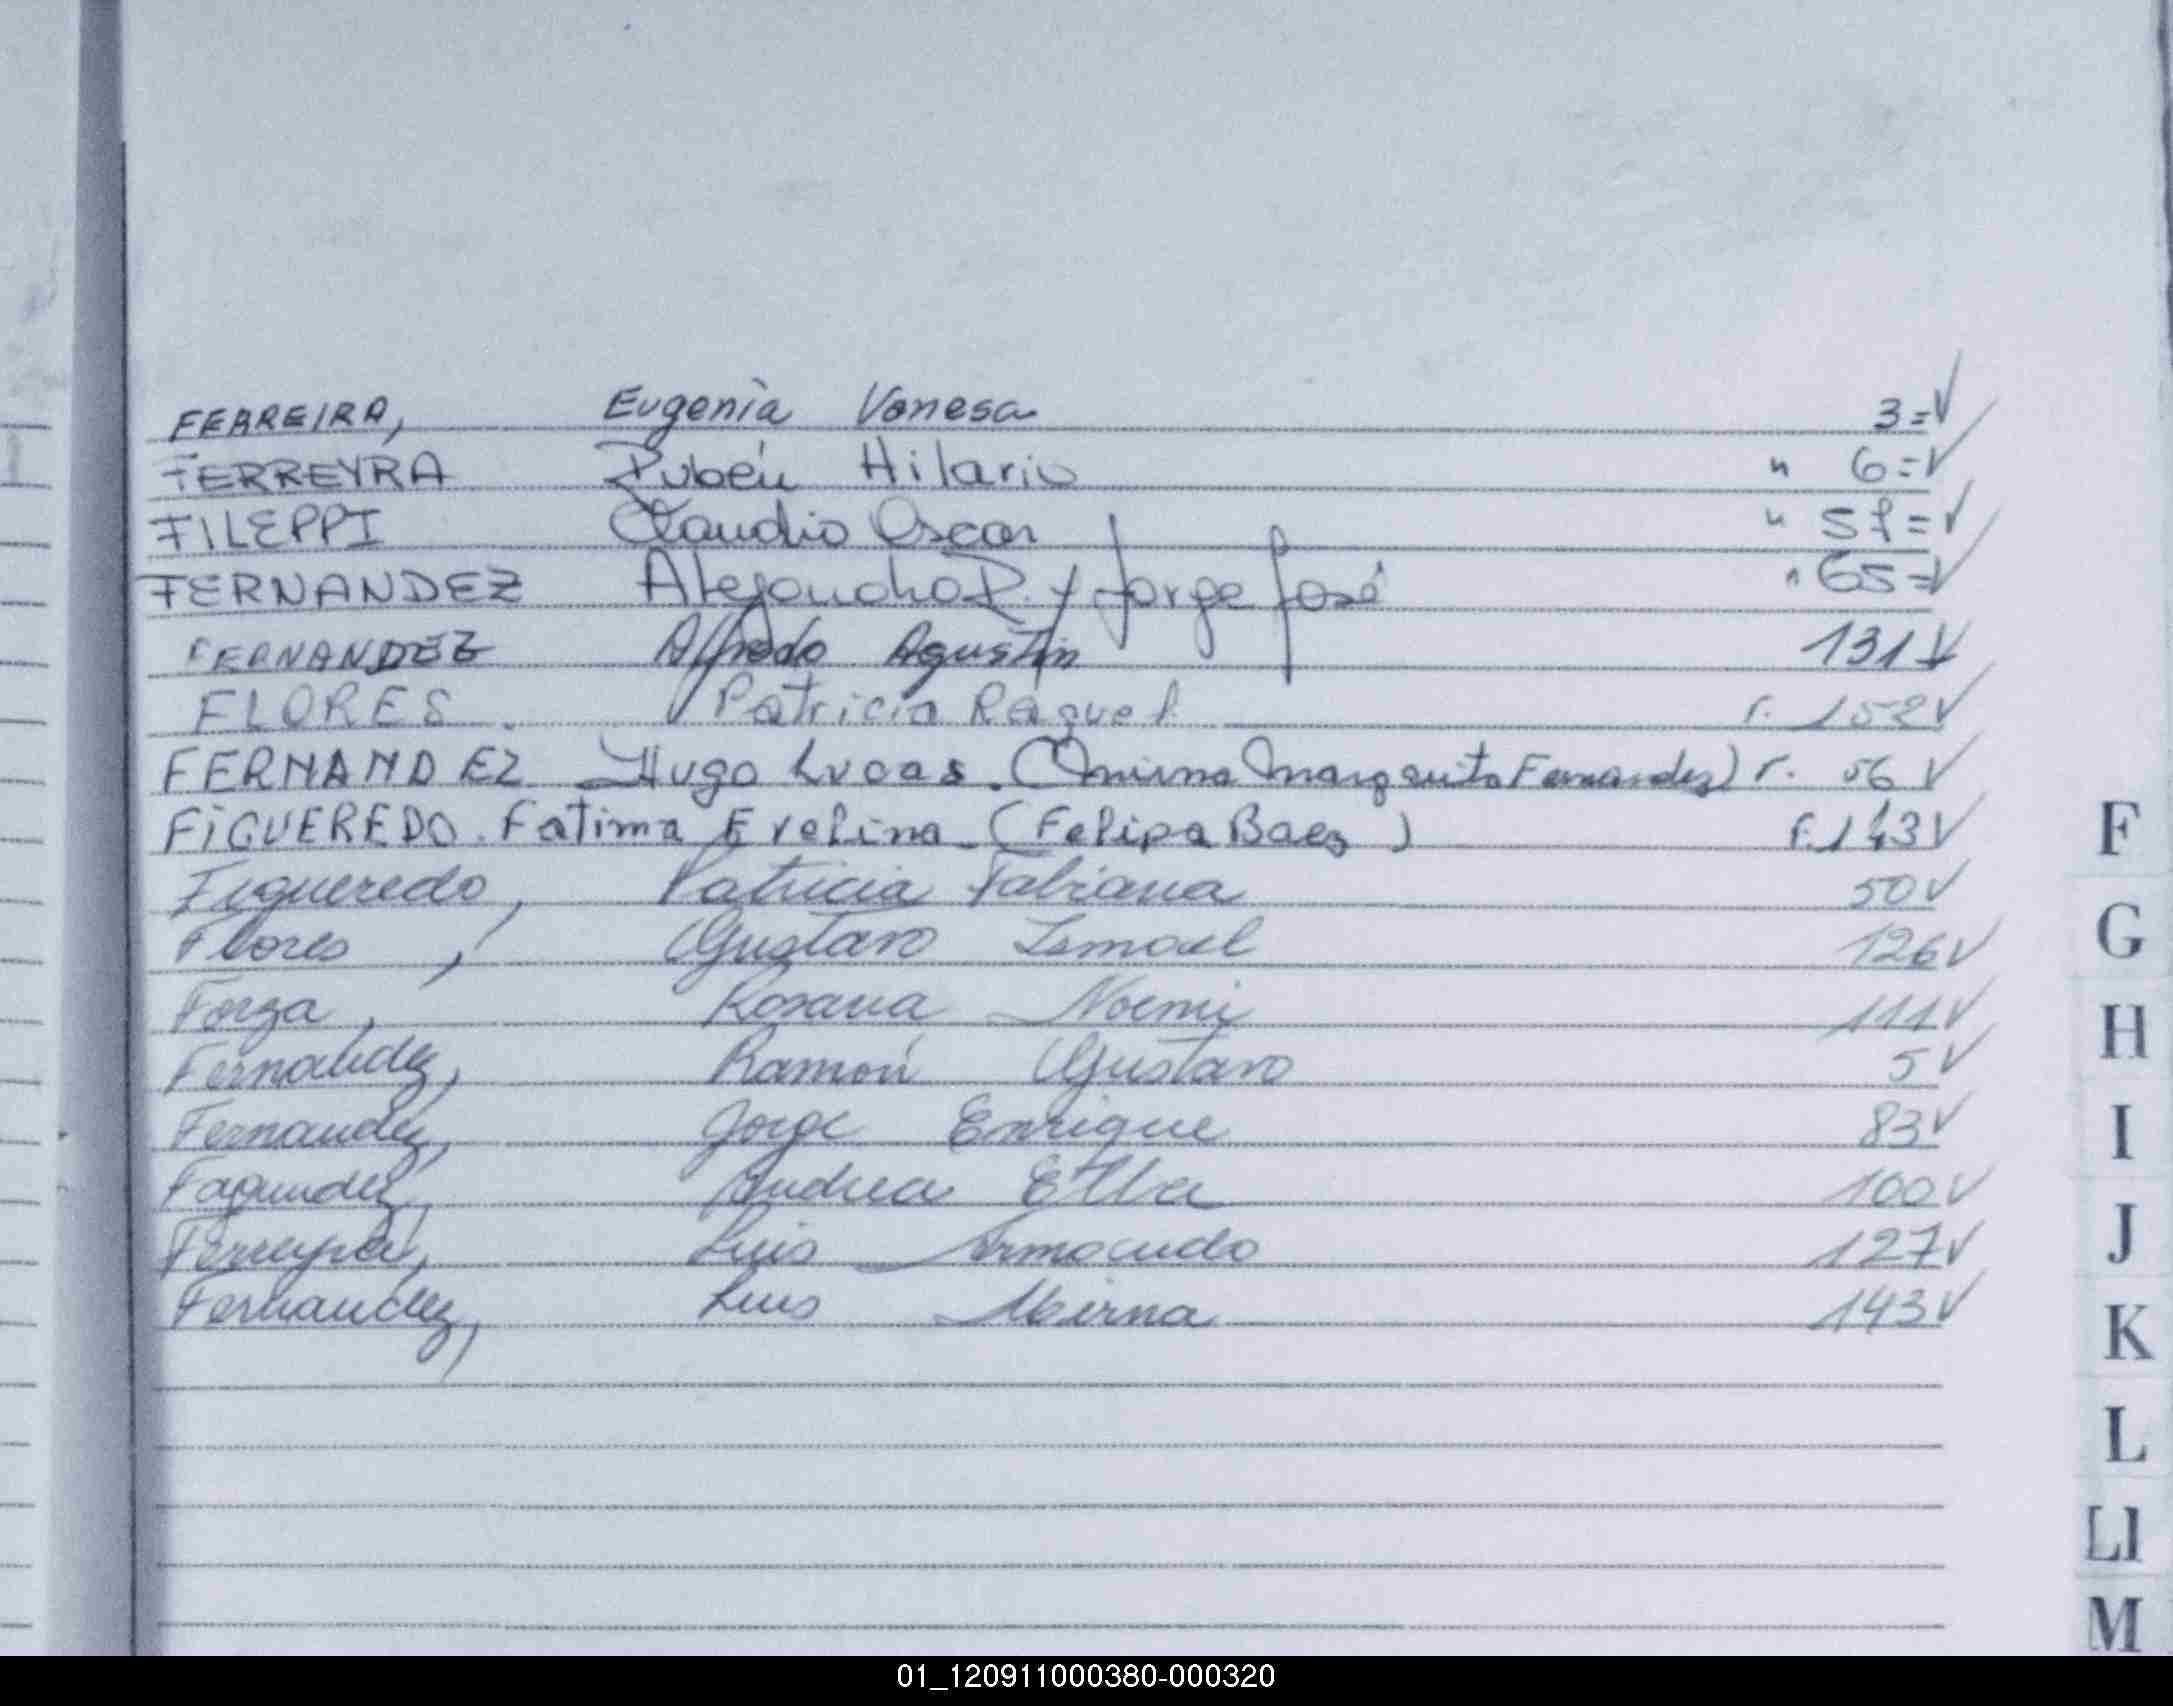 FERREIRA, Eugenia Vanesa 3=✓
FERREYRA Rubén Hilario " 6=✓
FILEPPI Claudio Oscar " 57=✓
FERNANDEZ Alejandro R. y Jorge José " 65=✓
FERNANDEZ Alfredo Agustín 131✓
FLORES. Patricia Raquel. F. 152✓
FERNANDEZ Hugo Lucas. (Mirna Margarita Fernandez) F. 56✓
FIGUEREDO. Fatima Evelina. (Felipa Baez) F. 143✓
Figueredo, Patricia Fabiana 50✓
Flores, Gustavo Ismael 126✓
Forza, Rosana Noemi 111✓
Fernandez, Ramón Gustavo 5✓
Fernandez, Jorge Enrique 83✓
Fagundez, Andrea Elba 100✓
Ferreyra, Luis Armando 127✓
Fernandez, Luis Mirna 143✓
F
G
H
I
J
K
L
Ll
M
01_120911000380-000320